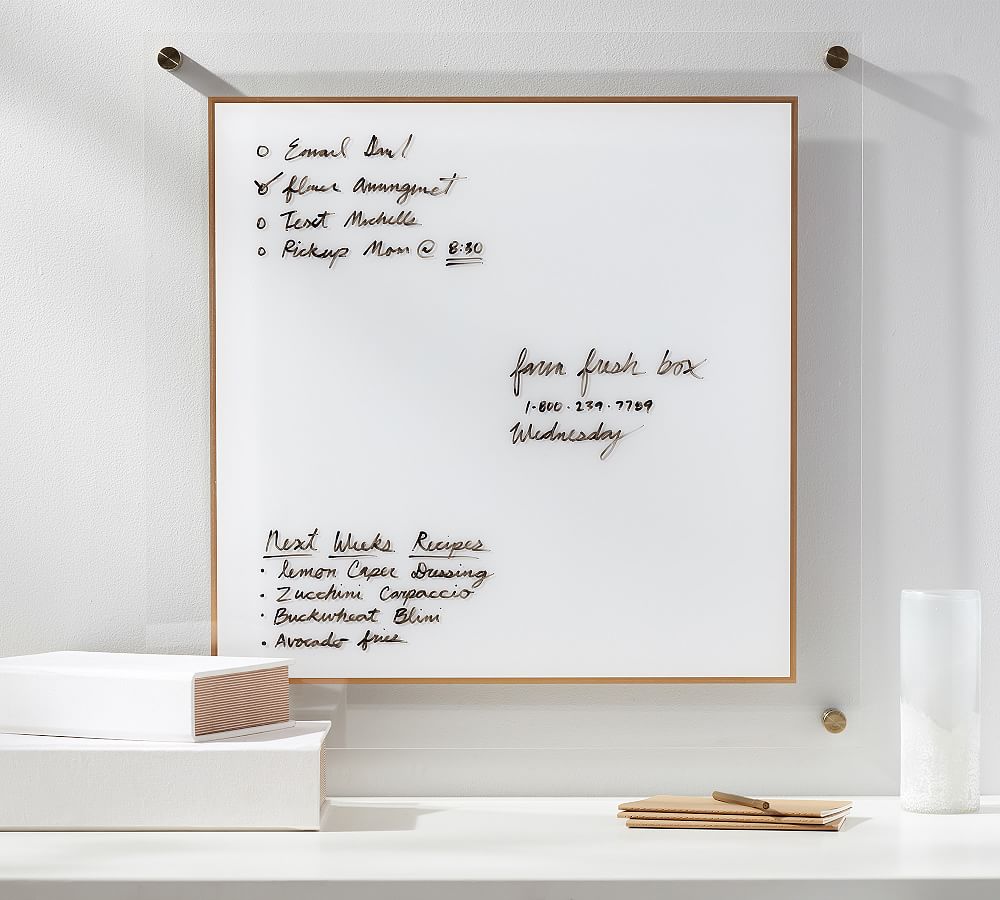 Email Paul
flower Arrangmet
Text Michelle
Pickup Mom @ 8:30
farm fresh box
1-800-239-7789
Wednesday
Next Weeks Recipes
lemon Caper Dressing
Zucchini Carpaccio
Buckwheat Blini
Avocado fries